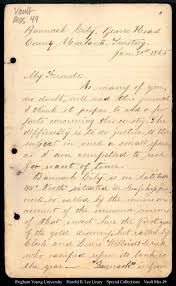 Vault
Mss 49
Bannack City, Beaver Head
County Montana Territory
Jany 30th 1865
My Friends
As many of you,
no doubt, will read this journal
I think it proper to add a few
facts concerning this country. The
difficulty is to do justice to the
subject in such a small space
as I am compelled to for
want of time.
Bannack City is in Latitude
45° North situated in Grasshopper
so called by the
of the
of that insect here the
of the gold discovery
Clark and
who camped upon its banks in
the year "Bannack" is from
Brigham Young University Harold B. Lee Library Special Collections Vault Mss 49